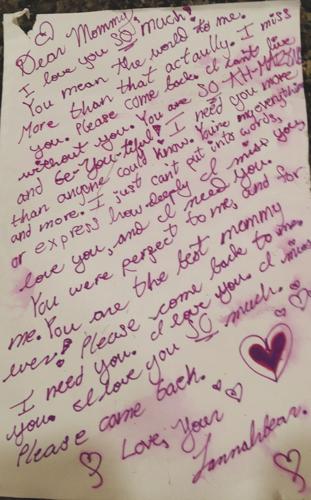 Dear Mommy,
I love you SO much!
You mean the world to me.
More than that actually. I miss
you. Please come back. I can't live
without you. You are SO
and be-you-tiful! I need you more
than anyone could know. You're my everything
and more. I just can't put into words,
or express how deeply I miss you,
love you, and I need you.
You were perfect to me, and for
me. You are the best mommy
ever! Please come back to me.
I need you. I love you. I miss
you. I love you SO much.
Please come back.
Love, Your